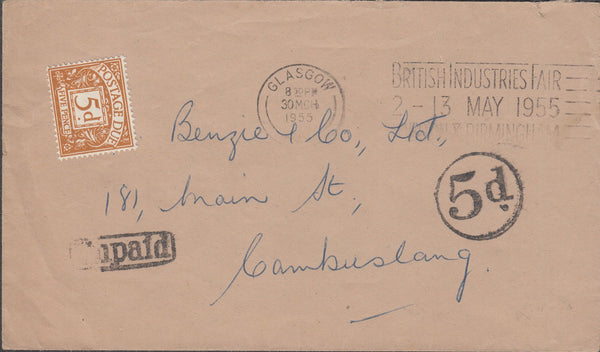 POSTAGE DUE
5d.
GLASGOW
30 MCH
1955
BRITISH INDUSTRIES FAIR
2 - 13 MAY 1955
BIRMINGHAM
Benzie & Co., Ltd.,
181, Main St.,
Cambuslang.
5d.
Unpaid